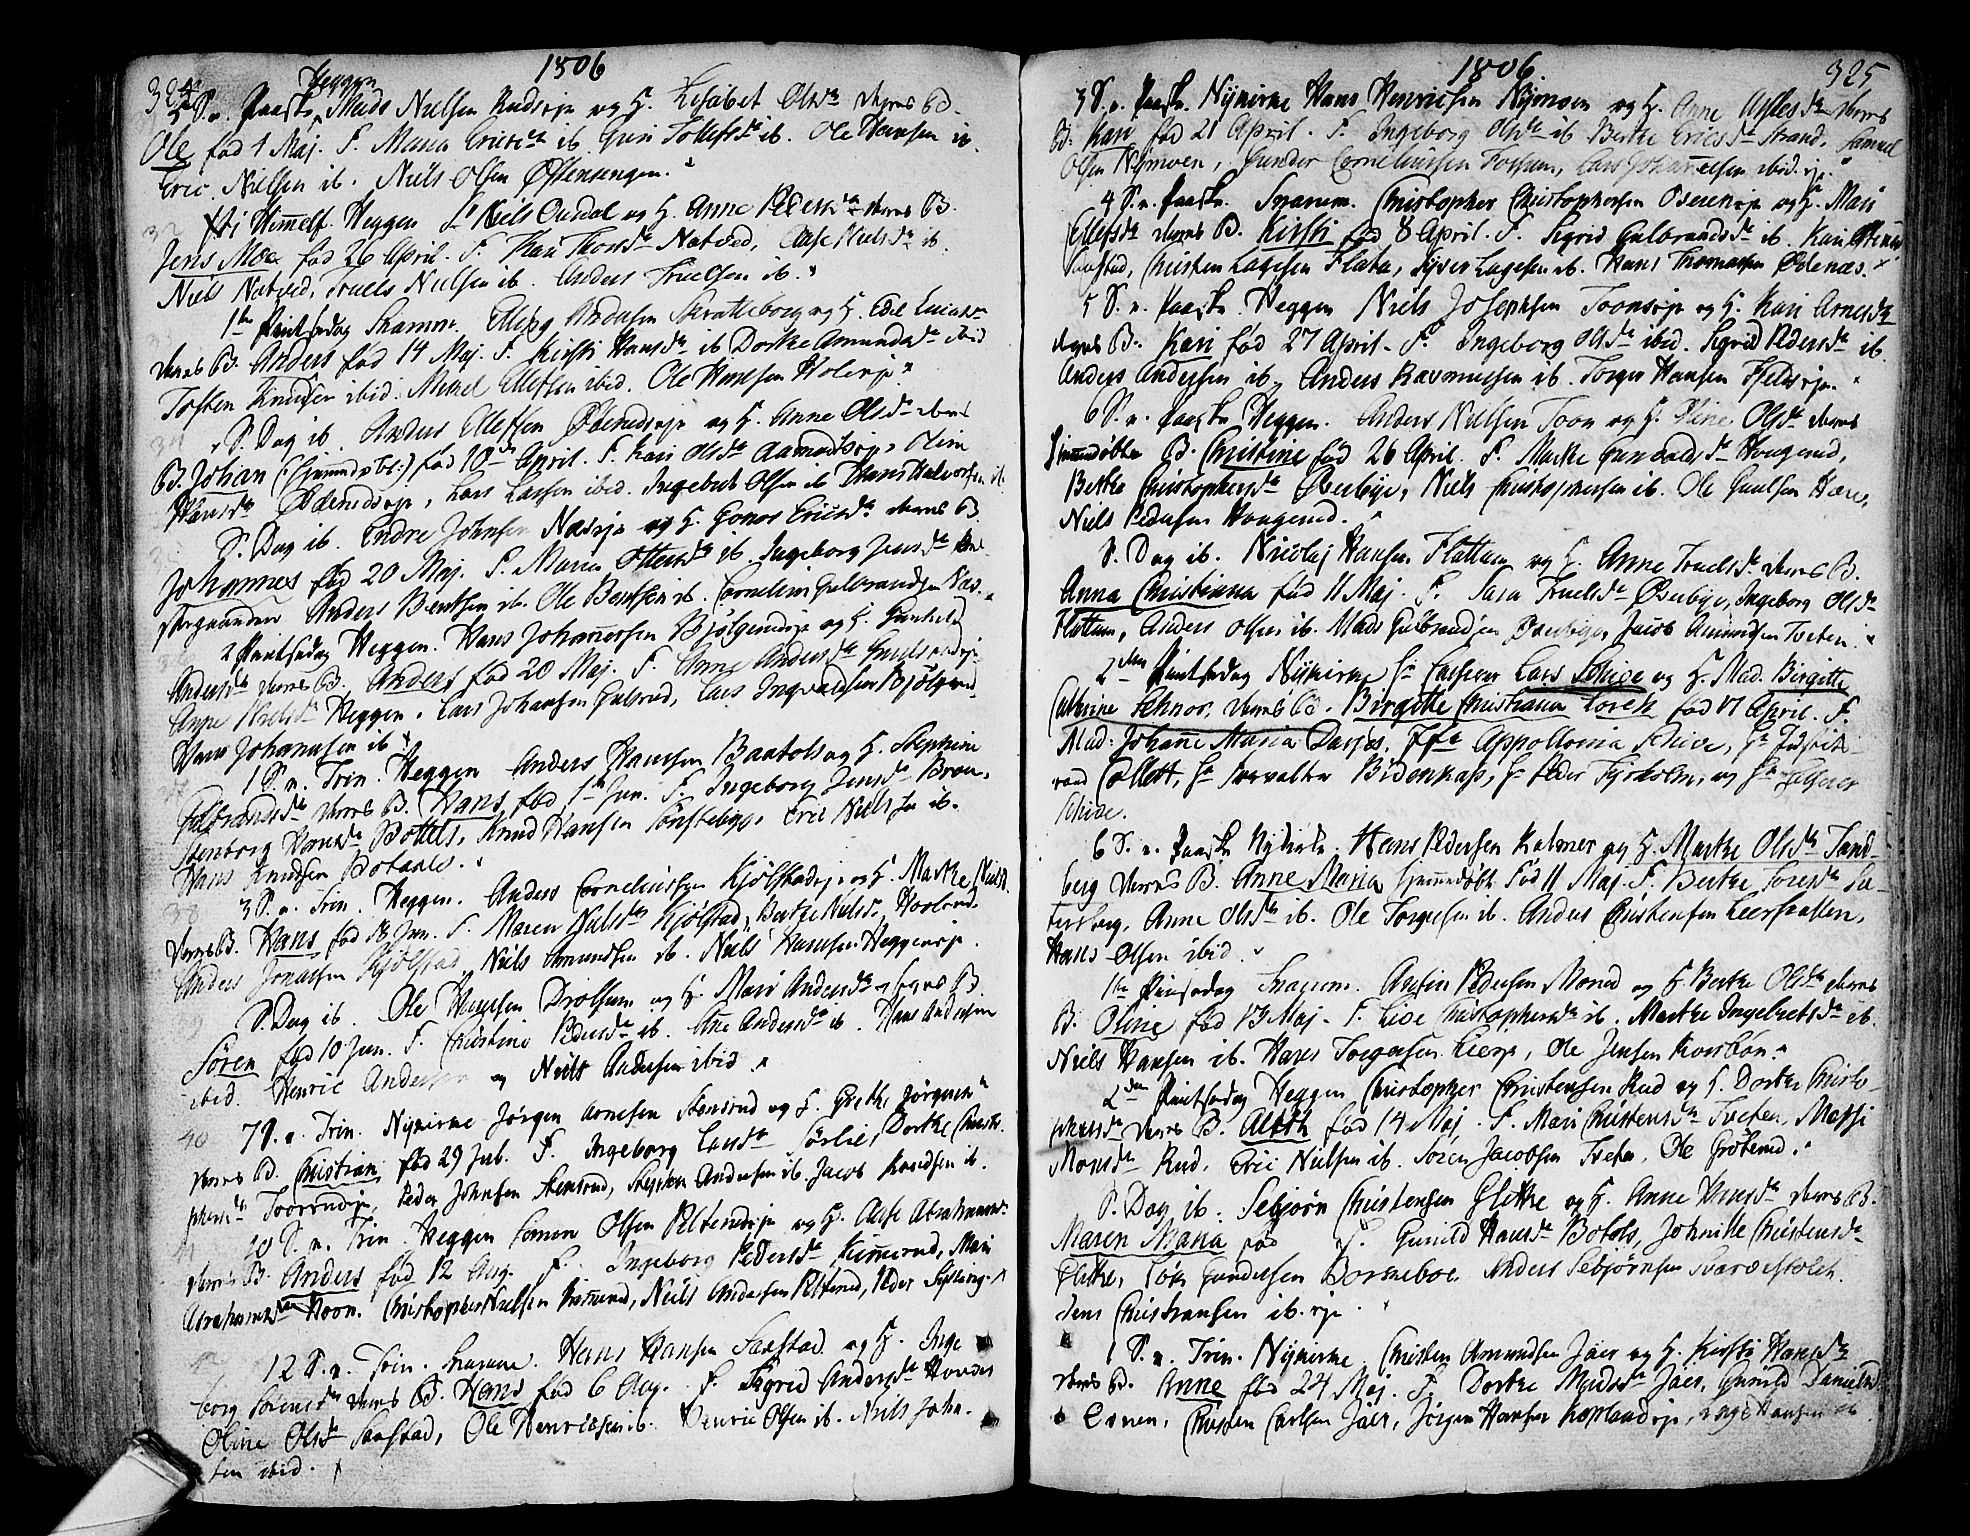 324 1806
5 S. n. Paaske, Heggen Mads Nielsen Rudseje og H. Lisabet Olsdr deres B.
Ole fød 1 Maj. F. Maria Ericsdr ib. Guri Tollefsdr ib. Ole Hansen ib.
Eric Nielsen ib. Niels Olsen Østensengen.
Chi Himelf. Heggen Sr Niels Ousdal og H. Anne Pedersdr deres B.
Jens Moe fød 26 April. F. Kari Thorsdr Natved, Aase Nielsdr ib.
Niels Natved, Truels Nielsen ib. Anders Truelsen ib.
1ste Pintsedag Snarum. Ellef Andersen Skratteborg og H. Edel Knudsdr
deres B. Anders fød 14 Maj. F. Kirsti Hansdr ib Dorthe Amundsdr ibid
Tosten Knudsen ibid. Mickel Ellefsen ibid. Ole Hansen Holeeje.
S. Dag ib. Anders Ellefsen Ødenrudseje og H. Anne Olsdr deres
B. Johan (:hjemmedøbt:) fød 10de April. F. Kari Olsdr Aamodtseje, Oline
Hansdr Ødenrudseje, Lars Larsen ibid. Ingebret Olsen ib Hans Halvorsen ib.
S. Dag ib. Endre Johnsen Næseje og H. Gonor Ericsdr deres B.
Johannes fød 20 Maj. F. Maria Ottersdr ib. Ingeborg Jensdr
Anders Bentsen ib. Ole Bentsen ib. Cornelius Gulbrandsen Næs.
2 Pintsedag Heggen. Hans Johannessen Bjølgerudeje og H. Gunhild
Andersdr deres B. Anders fød 20 Maj. F. Anne Andersdr Gulsrudeje
Anne Nielsdr Heggen. Lars Johansen Gulsrud, Lars Ingvaldsen Bjølgerud
Hans Johannesen ib
1 S. n. Trin. Heggen Anders Hansen Baatols og H. Stephine
Gulbrandsdr deres B. Hans fød 1ste Jun. F. Ingeborg Jensdr Bron-
stenborg Hansdr Bottels, Knud Hansen Sønsteby, Eric Nielsen ib.
Hans Knudsen Botoels.
38 3 S. n. Trin. Heggen. Anders Corneliussen Kjølstadeje og H. Marthe Nielsdr
deres B. Hans fød 13 Jun. F. Maren Nielsdr Kjølstad, Berthe Nielsdr
Anders Jonassen Kjølstad, Niels Amundsen ib. Niels Hansen Heggenseje.
S. Dag ib. Ole Hansen Drolsum og H. Mari Andersdr deres B
Søren fød 10 Jun. F. Christine Pedersdr ib. Ane Andersdr ib. Hans Andersen
ibid. Henric Andersen og Niels Andersen ibid
40 7 S. n. Trin. Nykirke Jørgen Arnesen Stensrud og H. Grethe Jørgensdr
deres B. Christian fød 29 Jul. F. Ingeborg Larsdr Sørlie, Dorthe Christo-
phersdr Toverudeje, Peder Johnsen Stensrud, Stephen Andersen ib. Jacob Knudsen ib.
10 S. n. Trin Heggen Simon Olsen Peltenrudeje og H. Aase Abrahamsdr
deres B. Anders fød 12 Aug. F. Ingeborg Pedersdr Kimerud, Mari
Abrahamsdr Hoon. Christopher Nielsen Kimerud, Niels Andersen Peltenrud, Peder
12 S. n. Trin. Snarum. Hans Hansen Saastad og H. Inge
borg Sørensdr deres B. Hans fød 6 Aug. F. Sigrid Andersdr Hovde
Oline Olsdr Saastad, Ole Henricsen ib. Henric Olsen ib. Niels John-
sen ibid.
1806. 325
3 S. n. Paaske. Nykirke Hans Henricsen Nymoen og H. Anne Asles dr deres
B. Kari fød 21 April. F. Ingeborg Olsdr ib Berthe Ericsdr Strand, Samuel
Olsen Nymoen, Gunder Corneliussen Fossum, Lars Johannesen ibid. eje.
4 S. n. Paaske. Snarum. Christopher Christophersen Øderneje og H. Mari
Ellefsdr deres B. Kirsti fød 8 April. F. Sigrid Gulbrandsdr ib. Kari
Saastad, Christen Lagesen Flata, Syver Lagesen ib. Hans Thomassen Ødenæs.
5 S. n. Paaske. Heggen Niels Josephsen Toonseje og H. Kari Arnesdr
deres B. Kari fød 27 April. F. Ingeborg Olsdr ibid. Sigrid Pedersdr ib.
Anders Andersen ib. Anders Rasmussen ib. Torger Hansen Fieldseje.
6 S. n. Paaske Heggen. Anders Nielsen Toon og H. Oline Olsdr deres
hjemmedøbte B. Christine fød 26 April. F. Marthe Gundersdr Hougerud,
Berthe Christophersdr Øverbye, Niels Christophersen ib. Ole Gulsen Hære,
Niels Pedersen Hougerud.
S. Dag ib. Nicolaj Hansen Flattum og H. Anne Truelsdr deres B.
Anna Christiana fød 11 Maj. F. Sara Truelsdr Øverbye, Ingeborg Olsdr
Flattum, Anders Olsen ib. Mads Gulbrandsen Øverbye, Jacob Amundsen Tveten.
2den Pintsedag Nykirke Hr Casserer Lars Schive og H. Mad. Birgitte
Cathrine Fehnor, deres B. Birgitte Christiana Coren fød 17 April. F.
Mad. Johanne Maria Darjes, Jfr Appollonia Schive, Hr Justits
raad Collett, Hr Forvalter Bidenkap, Hr Peder Tyrholm, og Hr
Schive.
6 S. n. Paaske Nykirke. Hans Pedersen Kalmer og H. Marthe Olsdr Sand-
berg deres B. Anne Maria hjemmedøbt fød 11 Maj. F. Berthe Toresdr Sæ-
tersberg, Anne Olsdr ib. Ole Torgersen ib. Anders Christensen Leerskallen,
Hans Olsen ibid.
1ste Pintsedag Snarum. Asten Pedersen Morud og H. Berthe Olsdr deres
B. Oline fød 13 Maj. F. Live Christophersdr ib. Marthe Ingebretsdr ib.
Niels Hansen ib. Hans Torgersen Leereje, Ole Jensen Korsbøn.
2den Pintsedag Heggen Christopher Christensen Rud og H. Dorthe Christo-
phersdr deres B. Aleth fød 14 Maj. F. Mari Christensdr Tveten, Massi
Monsdr Rud, Eric Nielsen ib. Søren Jacobsen Tveten, Ole Grøterud.
S. Dag ib. Sebjørn Christensen Glethe og H. Anne Hansdr deres B.
Maren Maria fød F. Gunild Hansdr Botols, Johnille Christensdr
Glethe, Tosten Gundersen Borneboe. Anders Sebjørnsen Svarvestolen.
Jens Christiansen ib. eje.
1 S. n. Trin. Nykirke, Christen Amundsen Jaer og H. Kirsti Hansdr
deres B. Anne fød 24 Maj. F. Dorthe Madsdr Jaer, Gunild Danielsdr
Esnen, Christen Carlsen Jaer, Jørgen Hansen Kopland eje, Lage Hansen ib